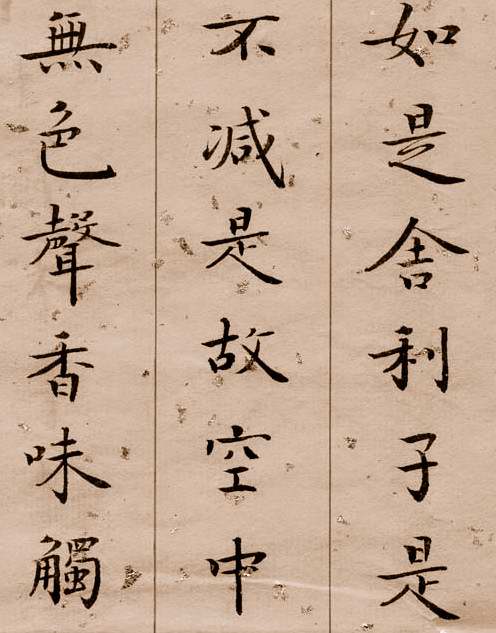 如是舍利子是
不減是故空中
無色聲香味觸